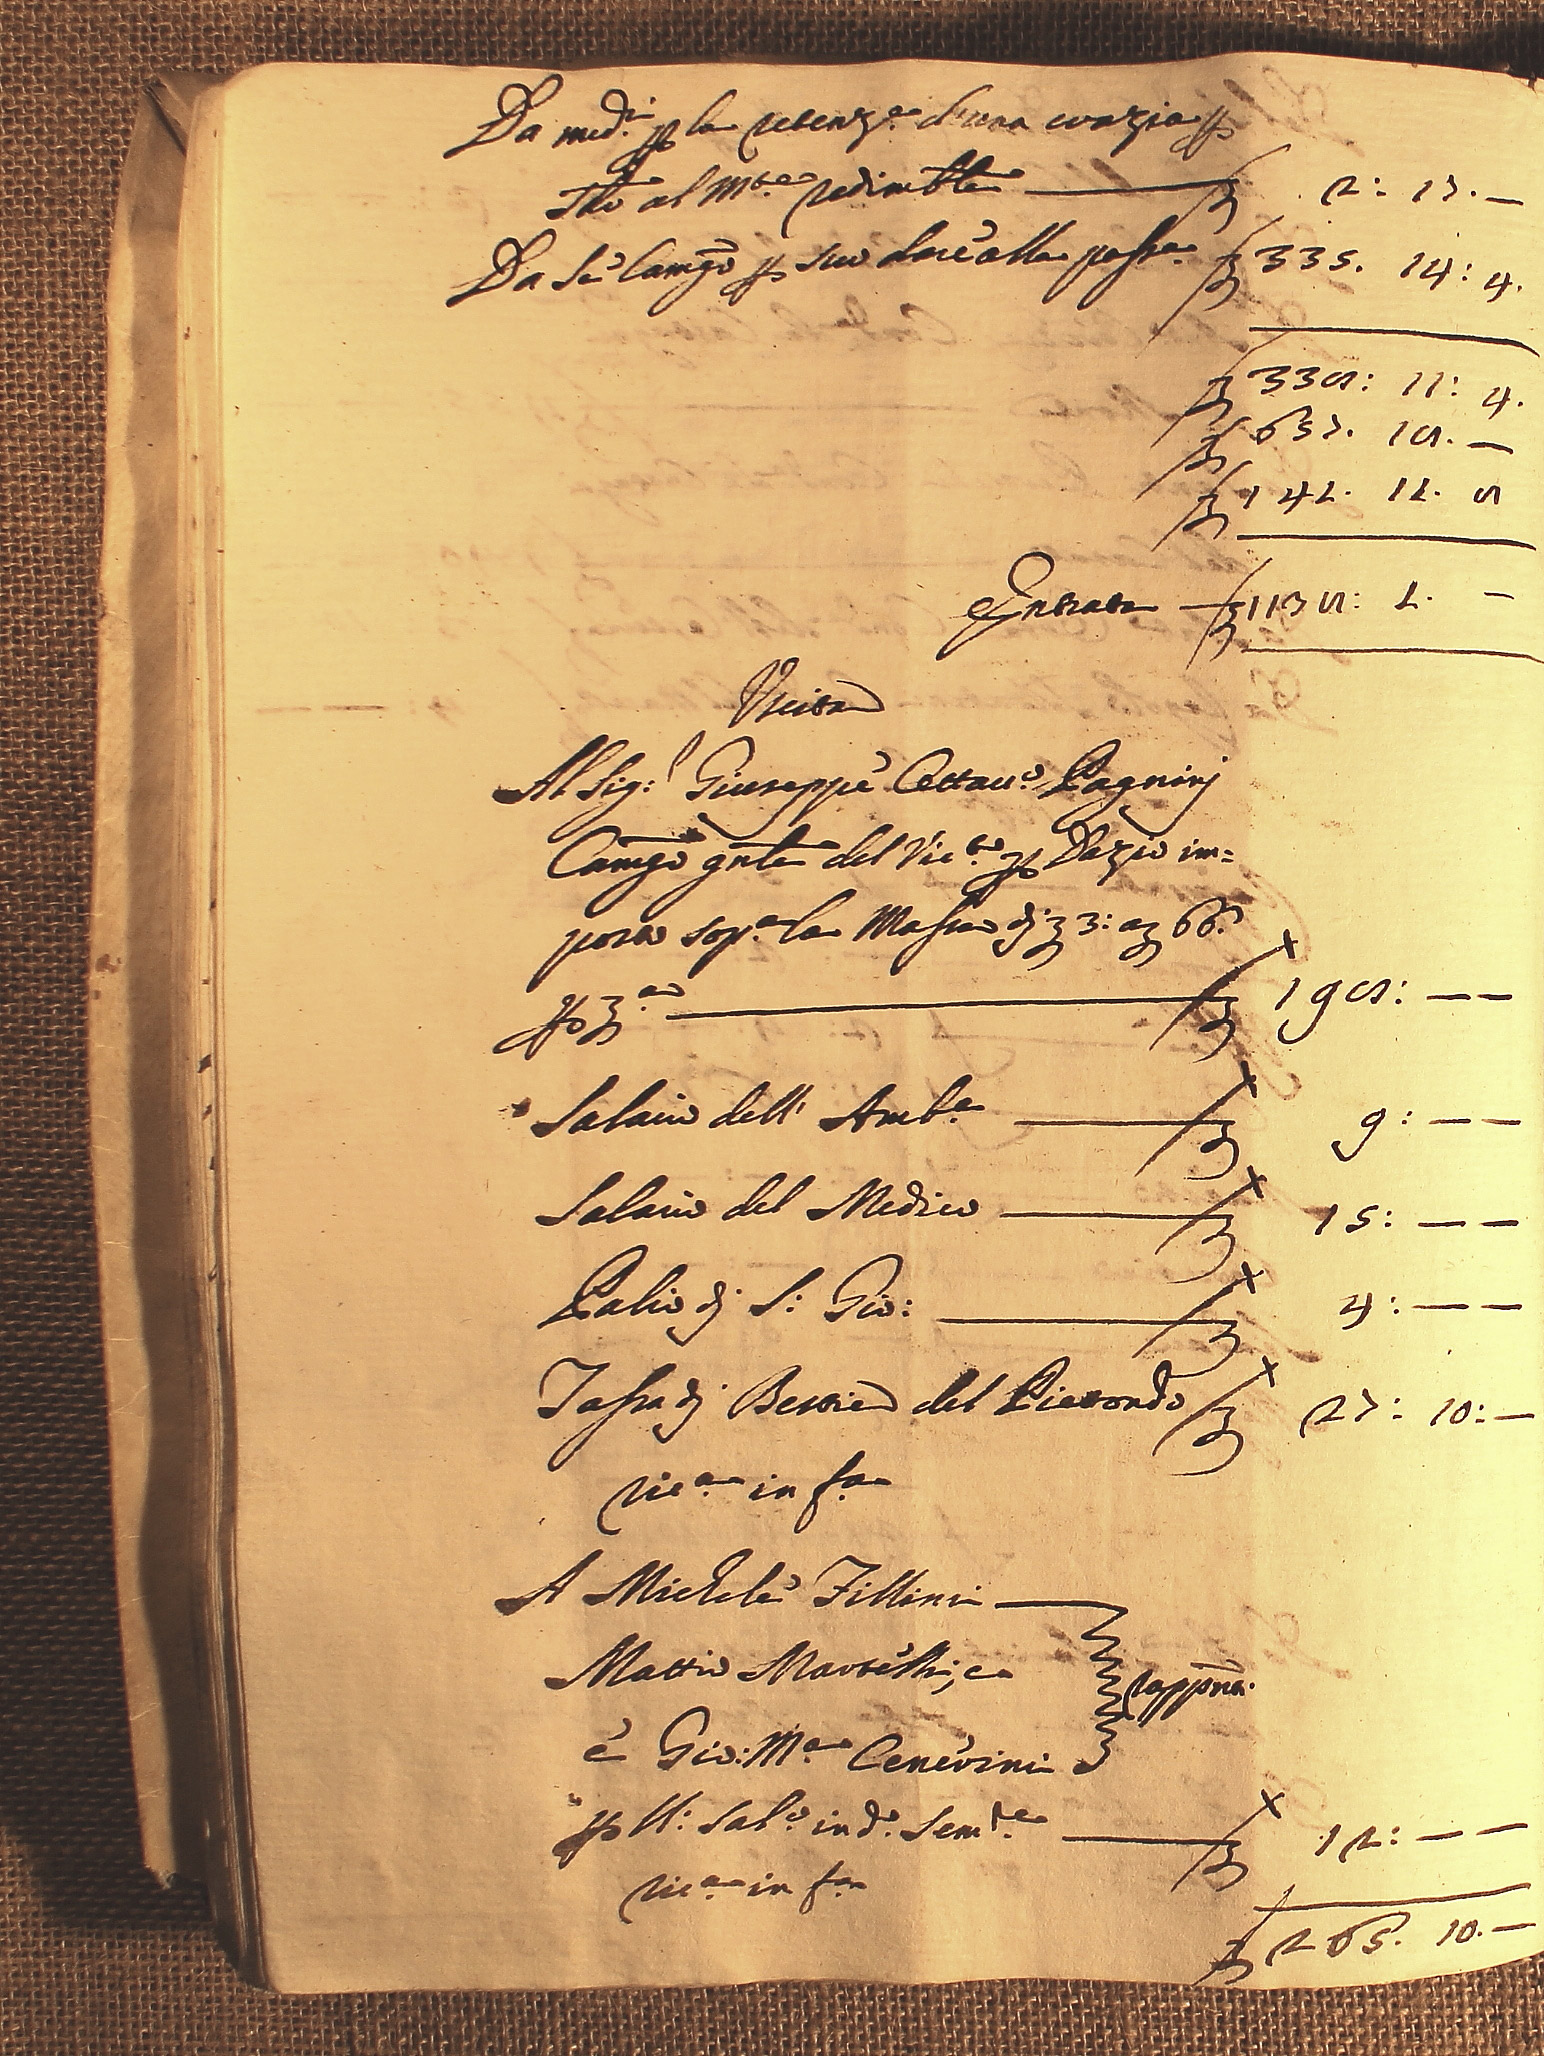 Da med.i p la retenz.e d'una crazia p
Tto al M.te redimble £ 2: 17. —
Da Se Camgo p suo dare alla passa £ 335. 14: 4.
£ 338: 11: 4.
£ 657. 18. —
£ 142. 12. 8
Entrata — £ 1138: 2. —
Uscita
Al Sig:r Giuseppe Ottau.o Pagninj
Camgo gnle del Vic.to p Dazio im=
posto sop.a la Massa dj £ 3: a £ 66.
p £.a £ 198: — —
Salario dell' Amb.e £ 9: — —
Salario del Medico £ 15: — —
Palio dj S: Gio: £ 4: — —
Tassa dj Bestie del Pietrondo £ 27: 10: —
ric.a in f.a
A Michele Fillini
Mattio Martelli, e
è Gio: M.a Cenerini rapptnti
p ll: Sal.o in d.o Sem.re £ 12: — —
ric.a in f.a
£ 265. 10. —